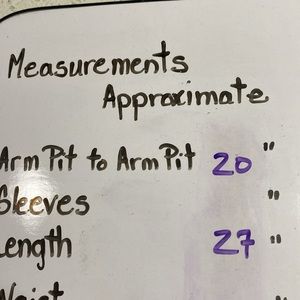 Measurements
Approximate
Arm Pit to Arm Pit 20 "
Sleeves "
Length 27 "
Waist "